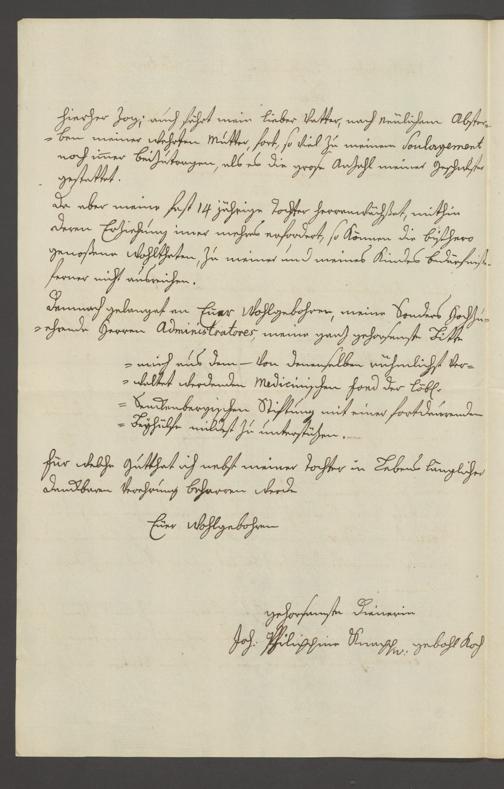 hierher zog; auch fährt mein lieber Vatter, nach neülichem Abster-
= ben meiner wehrten Mutter, fort, so viel zu meinem Soulagement
noch imer beizutragen, als es die große Anzahl meiner Geschwister
gestattet.
Da aber meine fast 14 jährige Tochter heranwächset, mithin
deren Erziehung imer mehres erfordert, so können die bißhero
genoßene Wohlthaten, zu meiner und meines Kindes Bedürfniß
ferner nicht ausreichen.
Demnach gelanget an Euer Wohlgebohren, meine Sonders Hochzu-
= ehrende Herren Administratores, meine ganz gehorsamste Bitte
= mich aus dem – von denenselben rühmlichst ver-
= waltet werdenden Medicinischen Fond der Löbl.
= Senckenbergischen Stifftung mit einer fortdauernden
= Beyhülfe mildest zu unterstützen.
für welche Gutthat ich nebst meiner Tochter in Lebens länglicher
danckbaren Verehrung beharren werde
Euer Wohlgebohren
gehorsamste Dienerin
Joh. Philippine Knapp, geb Koch